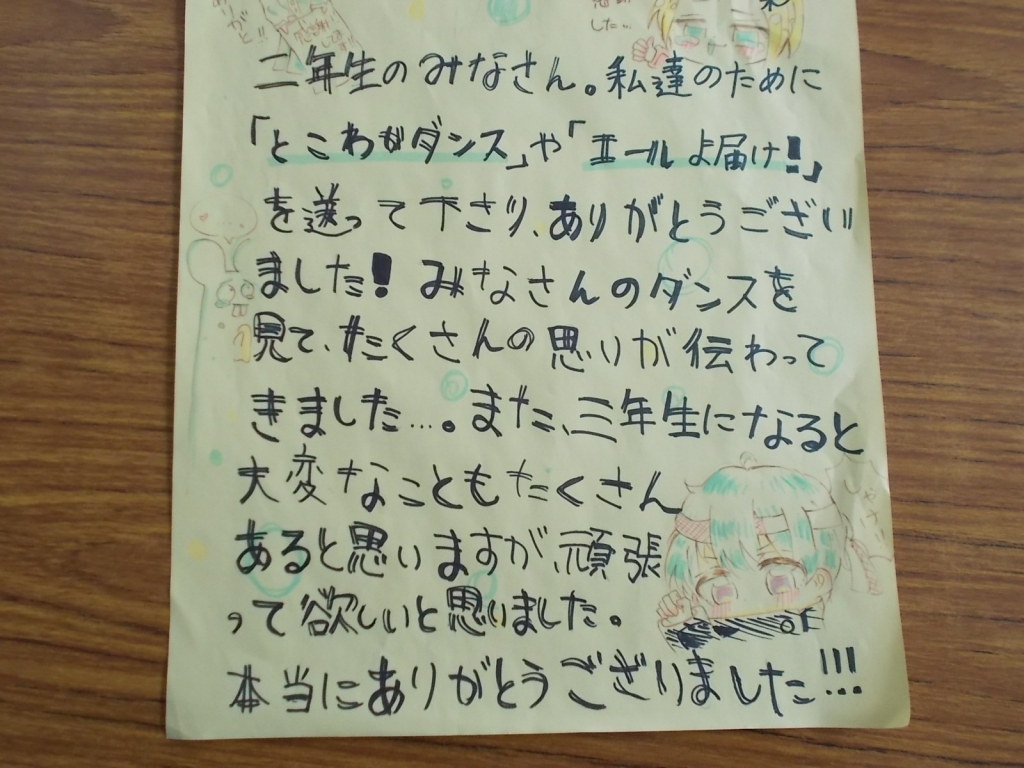 した…
二年生のみなさん。私達のために
「とこわかダンス」や「エールよ届け!」
を送って下さり、ありがとうござい
ました! みなさんのダンスを
見て、たくさんの思いが伝わって
きました…。また、三年生になると
大変なこともたくさん
あると思いますが、頑張
って欲しいと思いました。
本当にありがとうございました!!!